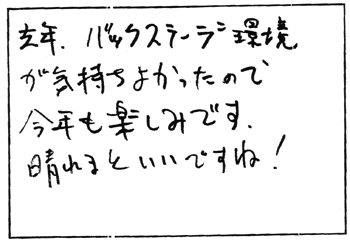 去年、バックステージ環境
が気持ちよかったので
今年も楽しみです.
晴れるといいですね!